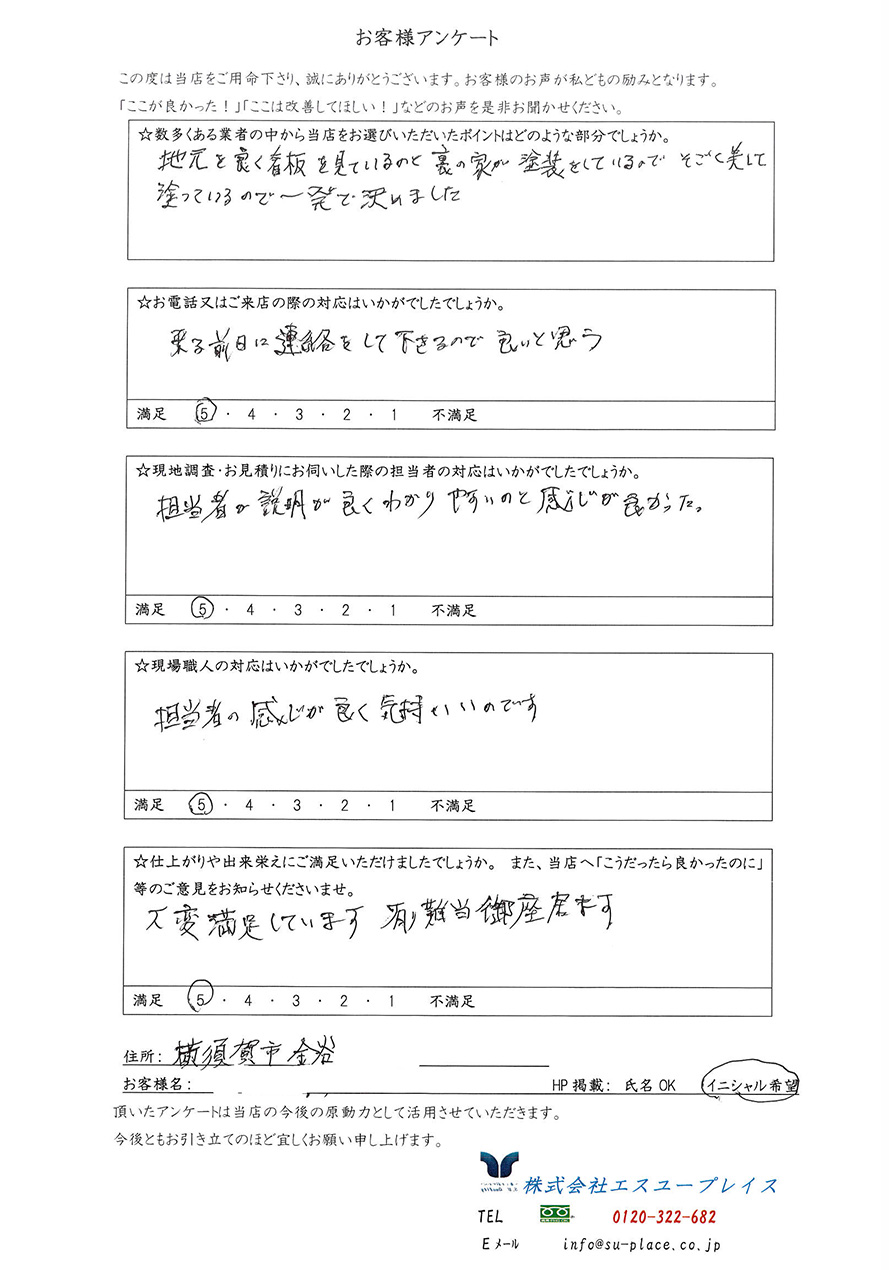 お客様アンケート
この度は当店をご用命下さり、誠にありがとうございます。お客様のお声が私どもの励みとなります。
「ここが良かった！」「ここは改善してほしい！」などのお声を是非お聞かせください。
☆数多くある業者の中から当店をお選びいただいたポイントはどのような部分でしょうか。
地元を良く看板を見ているのと裏の家が塗装をしているので そごく美して
塗っているので一発で決いました
☆お電話又はご来店の際の対応はいかがでしたでしょうか。
来る前日に連絡をして下さるので良いと思う
満足 5 ・ 4 ・ 3 ・ 2 ・ 1 不満足
☆現地調査・お見積りにお伺いした際の担当者の対応はいかがでしたでしょうか。
担当者が説明が良くわかりやすいのと感じが良かった。
満足 5 ・ 4 ・ 3 ・ 2 ・ 1 不満足
☆現場職人の対応はいかがでしたでしょうか。
担当者の感じが良く気持いいのです
満足 5 ・ 4 ・ 3 ・ 2 ・ 1 不満足
☆仕上がりや出来栄えにご満足いただけましたでしょうか。 また、当店へ「こうだったら良かったのに」
等のご意見をお知らせくださいませ。
大変満足しています 有難当御座居ます
満足 5 ・ 4 ・ 3 ・ 2 ・ 1 不満足
住所: 横須賀市金谷
お客様名: HP掲載: 氏名OK イニシャル希望
頂いたアンケートは当店の今後の原動力として活用させていただきます。
今後ともお引き立てのほど宜しくお願い申し上げます。
株式会社エスユープレイス
TEL 0120-322-682
Eメール info@su-place.co.jp